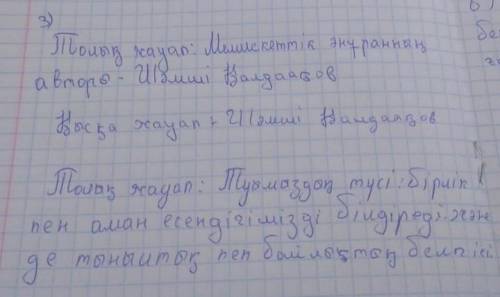 3)
Толық жауап: Мемлекеттік әнұранның
авторы - Шәмші Қалдаяқов
Қысқа жауап: Шәмші Қалдаяқов
Толық жауап: Тумаздақ түсі: бірлік
пен аман есендігімізді білдіреді және
де тыныштық пен байлықтың белгісі